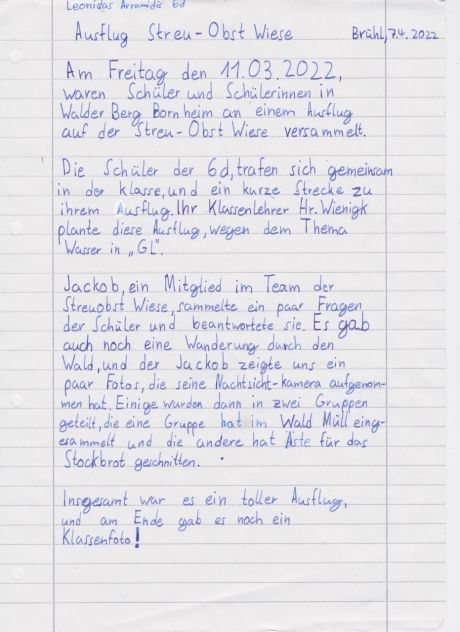 Leonidas Arramidis 6d
Ausflug Streu-Obst Wiese Brühl, 7.4.2022
Am Freitag den 11.03.2022,
waren Schüler und Schülerinnen in
Walder Berg Bornheim an einem Ausflug
auf der Streu-Obst Wiese versammelt.
Die Schüler der 6d, trafen sich gemeinsam
in der klasse, und ein kurze Strecke zu
ihrem Ausflug. Ihr Klassenlehrer Hr. Wienigk
plante diese Ausflug, wegen dem Thema
Wasser in „GL".
Jackob, ein Mitglied im Team der
Streuobst Wiese, sammelte ein paar Fragen
der Schüler und beantwortete sie. Es gab
auch noch eine Wanderung durch den
Wald, und der Jackob zeigte uns ein
paar Fotos, die seine Nachtsicht-kamera aufgenom-
men hat. Einige wurden dann in zwei Gruppen
geteilt, die eine Gruppe hat im Wald Müll eing-
esammelt und die andere hat Äste für das
Stockbrot geschnitten.
Insgesamt war es ein toller Ausflug,
und am Ende gab es noch ein
Klassenfoto!